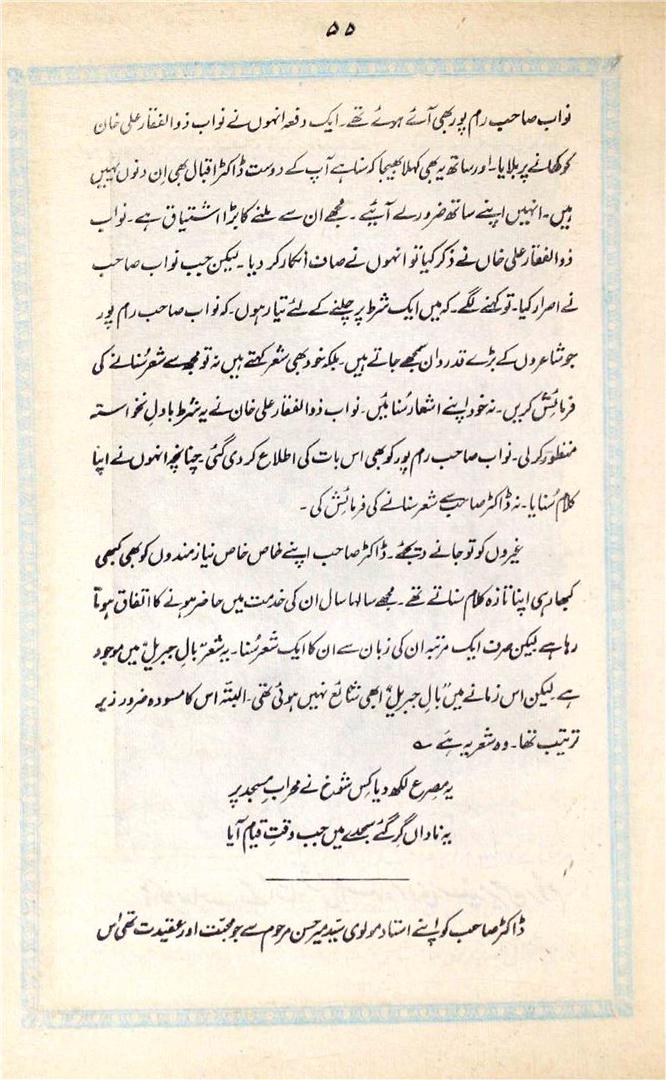 ۵۵
نواب صاحب رام پور بھی آئے ہوئے تھے۔ ایک دفعہ انہوں نے نواب ذوالفقار علی خان
کو کھانے پر بلایا۔ اور ساتھ یہ بھی کہلا بھیجا کہ سنا ہے آپ کے دوست ڈاکٹر اقبال بھی اِن دنوں یہیں
ہیں۔ انہیں اپنے ساتھ ضرور لے آئیے۔ مجھے ان سے ملنے کا بڑا اشتیاق ہے۔ نواب
ذوالفقار علی خاں نے ذکر کیا تو انہوں نے صاف انکار کر دیا۔ لیکن جب نواب صاحب
نے اصرار کیا۔ تو کہنے لگے۔ کہ میں ایک شرط پر چلنے کے لئے تیار ہوں۔ کہ نواب صاحب رام پور
جو شاعروں کے بڑے قدردان سمجھے جاتے ہیں۔ بلکہ خود بھی شعر کہتے ہیں نہ تو مجھ سے شعر سُنانے کی
فرمائش کریں۔ نہ خود اپنے اشعار سُنائیں۔ نواب ذوالفقار علی خان نے یہ شرط بادلِ نخواستہ
منظور کر لی۔ نواب صاحب رام پور کو بھی اس بات کی اطلاع کر دی گئی۔ چنانچہ انہوں نے اپنا
کلام سُنایا۔ نہ ڈاکٹر صاحب سے شعر سنانے کی فرمائش کی۔
غیروں کو تو جانے دیجئے۔ ڈاکٹر صاحب اپنے خاص خاص نیازمندوں کو بھی کبھی
کبھار ہی اپنا تازہ کلام سناتے تھے۔ مجھے سالہا سال ان کی خدمت میں حاضر ہونے کا اتفاق ہوتا
رہا ہے لیکن صرف ایک مرتبہ ان کی زبان سے ان کا ایک شعر سُنا۔ یہ شعر "بالِ جبریل" میں موجود
ہے لیکن اس زمانے میں "بالِ جبریل" ابھی شائع نہیں ہوئی تھی۔ البتہ اس کا مسودہ ضرور زیرِ
ترتیب تھا۔ وہ شعر یہ ہے ؎
یہ مصرع لکھ دیا کس شوخ نے محرابِ مسجد پر
یہ ناداں گر گئے سجدے میں جب وقتِ قیام آیا
ڈاکٹر صاحب کو اپنے استاد مولوی سیّد میر حسن مرحوم سے جو محبّت اور عقیدت تھی اس